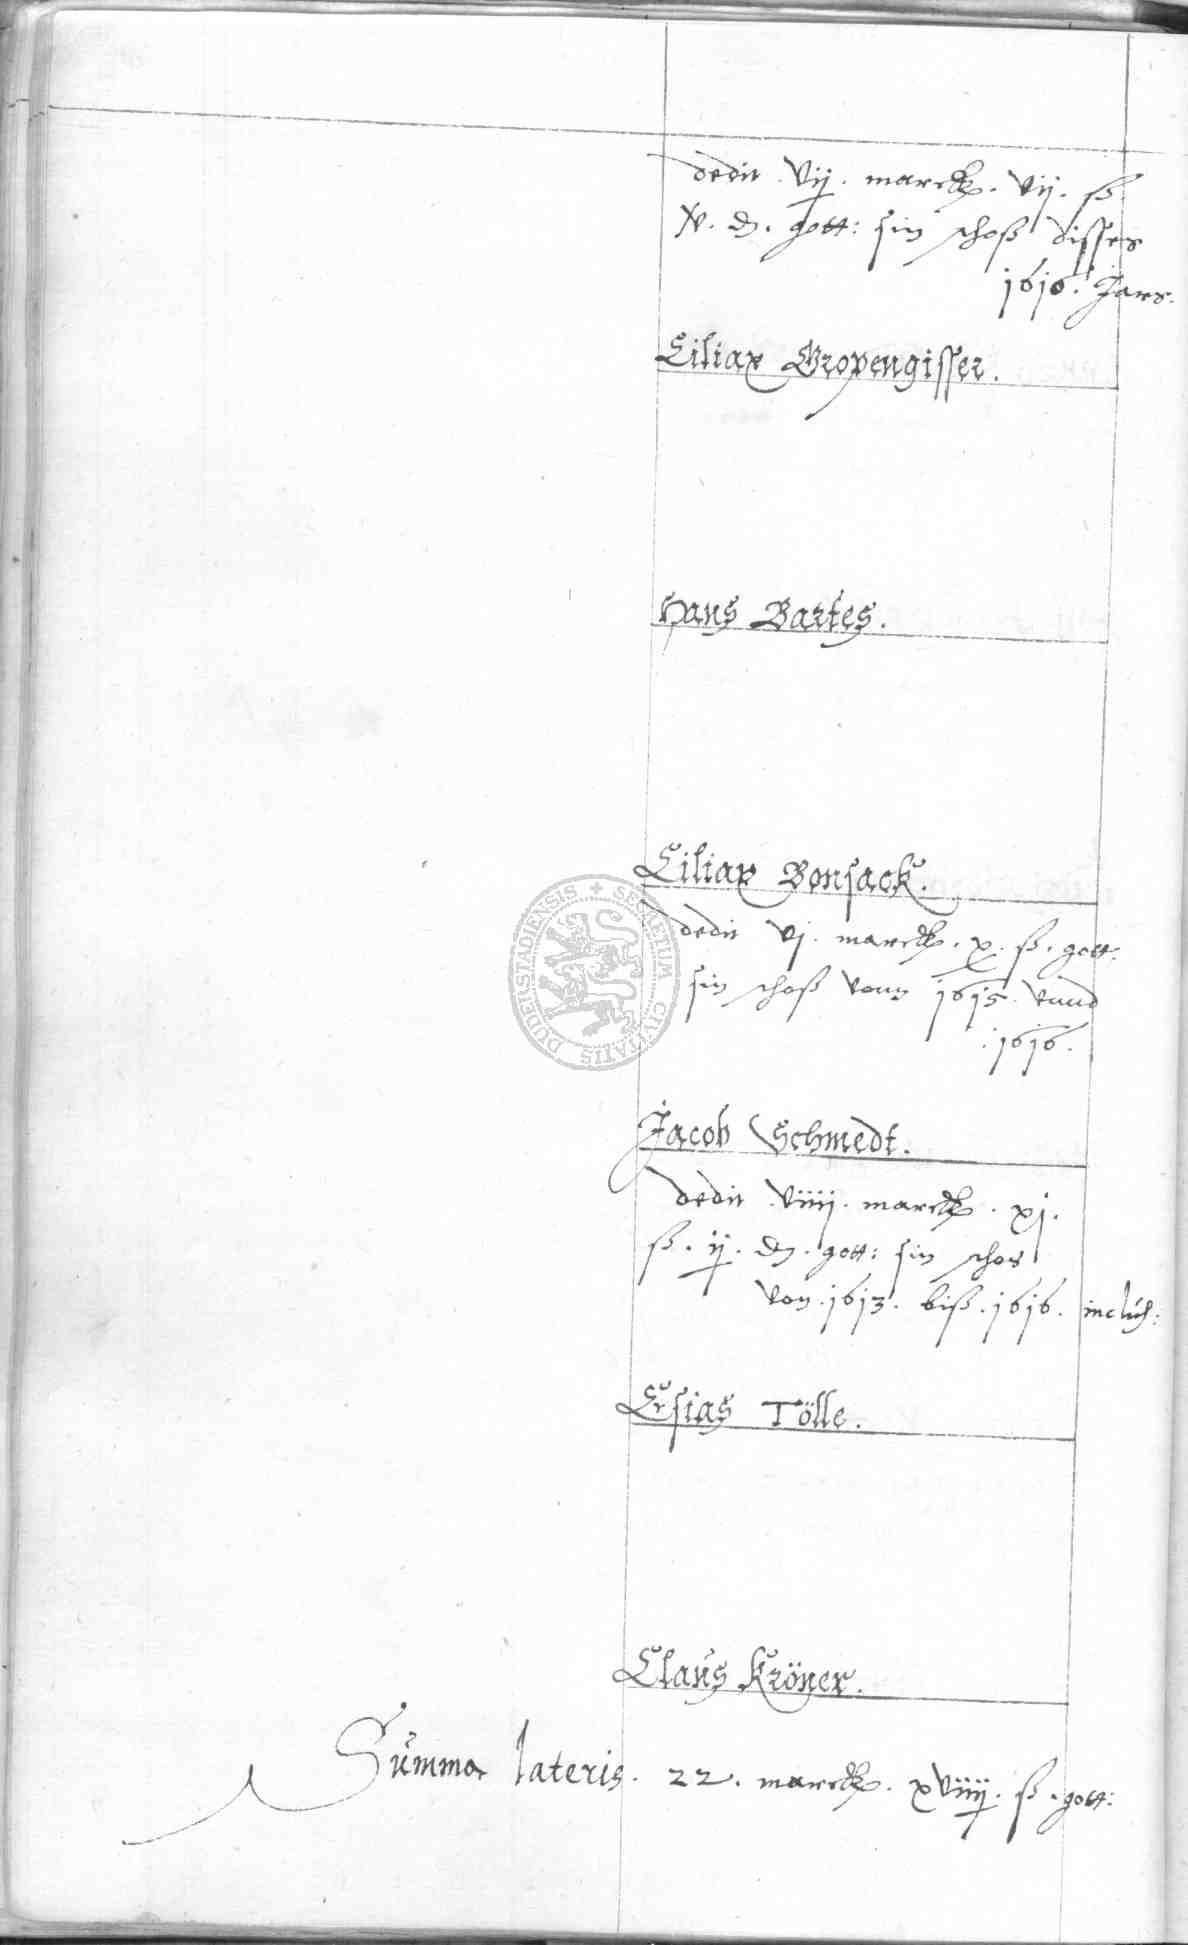 dedit . vij . marck . vij . ß
iv . d . gott: sin schoß disses
1616 . Jars.
Ciliax Gropengisser.
Hans Bartes.
Ciliax Bonsack.
dedit vj . marck . x . ß . gott:
sin schoß vonn 1615 . vnnd
. 1616 .
SECRETUM CIVITATIS DUDERSTADIENSIS
Jacob Schmedt.
dedit . viiij . marck . xj .
ß . ij . d . gott: sin schos
von . 1613 . biß . 1616 . inclus:
Esias Tölle.
Claus Kröner.
Summa lateris . 22 . marck . xviiij . ß . gott: